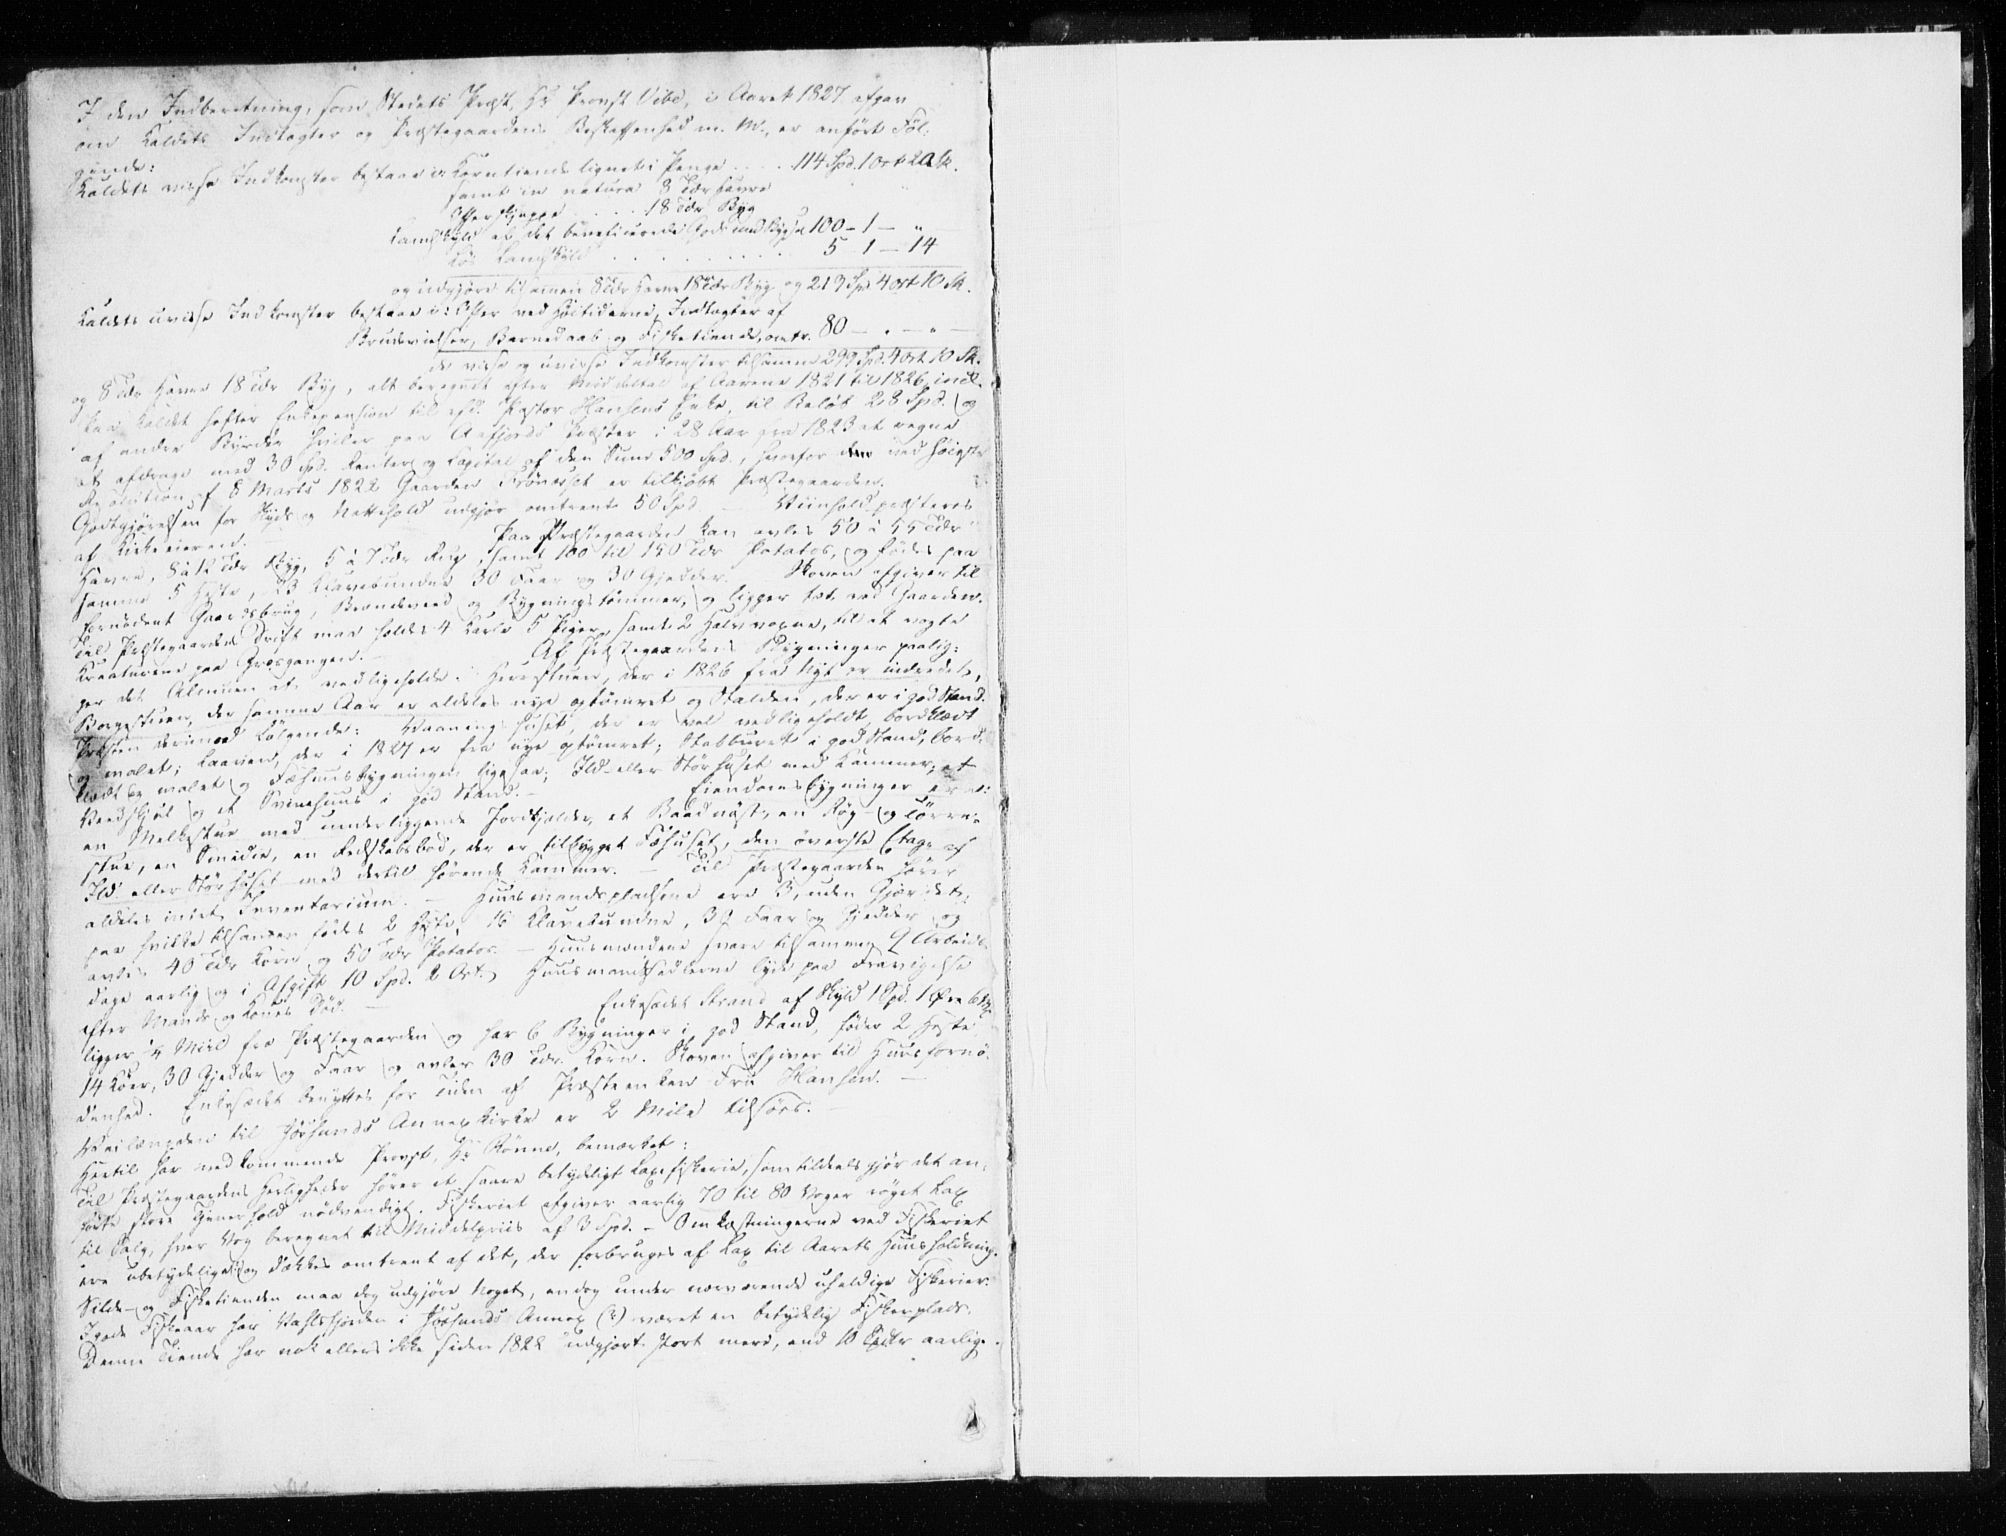 I den Indberetning, som Stedets Præst, Hr Provst Vibe, i Aaret 1827 afgav
om Kaldets Indtægter og Præstegaardens Beskaffenhed m. M., er anført Føl-
gende:
Kaldets visse Indkomster bestaae i Korntiende lignet i Penge .... 114 Spd. 1 Ort 20 Sk.
samt in natura 8 Tdr Havre
Offerskjeppe .... 18 Tdr Byg
Landskyld af det beneficerede Gods med Bygsel 100 - 1 - "
Løs Landskyld .......... 5 - 1 - 14
og udgjøre tilsamen 8 Tdr Havre 18 Tdr Byg og 219 Spd 4 Ort 10 Sk.
Kaldets uvisse Indkomster bestaae i: Offer ved Høitiderne, Indtægter af
Brudevielser, Barnedaab og Fisketiende, omtr. 80 - " - " -
de visse og uvisse Indkomster tilsamen 299 Spd. 4 Ort 10 Sk.
og 8 Tdr Havre 18 Tdr Byg, alt beregnet efter Middeltal af Aarene 1821 til 1826 incl.
Paa Kaldet hefter Enkepension til afd. Pastor Hansens Enke, til Beløb 28 Spd. og
af andre Byrder hviler paa Aafjords Præster i 28 Aar fra 1823 at regne
at afdrage med 30 Spd. Renter og Capital af den Sum 500 Spd., hvorfor der ved høieste
Resolution af 8 Marts 1822 Gaarden er tilkjøbt Præstegaarden.
Godtgjørelsen for Skyds og Nattehold udgjør omtrent 50 Spd - Viinhold præsteres
af Kirkeeieren. - Paa Præstegaarden kan avles 50 à 55 Tdr
Havre, 8 à 12 Tdr Byg, 5 à 7 Tdr Rug, samt 100 til 150 Tdr Potatos, og fødes paa
samme 5 Heste, 23 Klavebundne 30 Faar og 30 Gjedder. - Skoven afgiver til
fornødent Gaardsbrug, Brændeveed og Bygningstømmer, og ligger tæt ved Gaarden.
Til Præstegaardens Drift maa holdes 4 Karle 5 Piger, samt 2 Halvvoxne, til at vogte
Kreaturene paa Græsgangen. - Af Præstegaardens Bygninger paalig-
ger det Almuen at vedligeholde: Herrestuen, der i 1826 fra Nyt er indredet,
Borgestuen, der samme Aar er aldeles nye optømret og Stalden, der er i god Stand.
Præsten derimod Følgende: Vaaningshuset, der er vel vedligeholdt, bordklædt
og malet; Laaven, der i 1827 er fra nye optømret; Stabburet i god Stand, bord-
klædt og malet og Fæhuusbygningen ligesaa; Ild- eller Størhuset med Kammer, et
Veedskjul og et Svinehuus i god Stand. - Eiendomsbygninger ere:
en Melkestue med underliggende Jordkjelder, et Baadnøst, en Røg- og Tørre-
stue, en Smedie, en Redskabsbod, der er tilbygget Fæhuset, den øverste Etage af
Ild- eller Størhuset med dertil hørende Kammer. - Til Præstegaarden hører
aldeles intet Inventarium. - Huusmandspladsene ere 3, uden Gjærdet,
paa hvilke tilsamen fødes 2 Heste, 16 Klavebundne, 37 Faar og Gjedder og
avles 40 Tdr Korn og 50 Tdr Potatos. - Huusmændene svare tilsammen 9 Arbeids-
dage aarlig og i Afgift 10 Spd. 2 Ort. Huusmandssedlerne lyde paa Fravigelse
efter Mands og Kones Død. - Enkesædet Strand af Skyld 1 Spd. 1 Øre 6
ligger 1/4 Miil fra Præstegaarden og har 6 Bygninger i god Stand, føder 2 Heste
14 Køer, 30 Gjedder og Faar og avler 30 Tdr. Korn. Skoven afgiver til Huusfornø-
denhed. Enkesædet benyttes for Tiden af Præsteenken Fru Hansen. -
Veilængden til Jøssunds Annexkirke er 2 Mile tilsøes. -
Hertil har vedkommende Provst, Hr Rønne, bemærket:
Til Præstegaardens Herligheder hører et saare betydeligt Laxefiskerie, som tildeels gjør det an-
førte store Tjenerhold nødvendigt. Fiskeriet afgiver aarlig 70 til 80 Voger røget Lax
til Salg, hver Vog beregnet til Middelpriis af 3 Spd. - Omkostningerne ved Fiskeriet
ere ubetydelige og dækkes omtrent af det, der forbruges af Lax til Aarets Huusholdning.
Silde- og Fisketienden maa dog udgjøre Noget, endog under nærværende uheldige Fiskerier.
I gode Fiskeaar har Vahlsfjorden i Jøssunds Annex (?) været en betydelig Fiskerplads.
Denne Tiende har nok ellers ikke siden 1822 udgjort stort mere, end 10 Spdr aarlig.